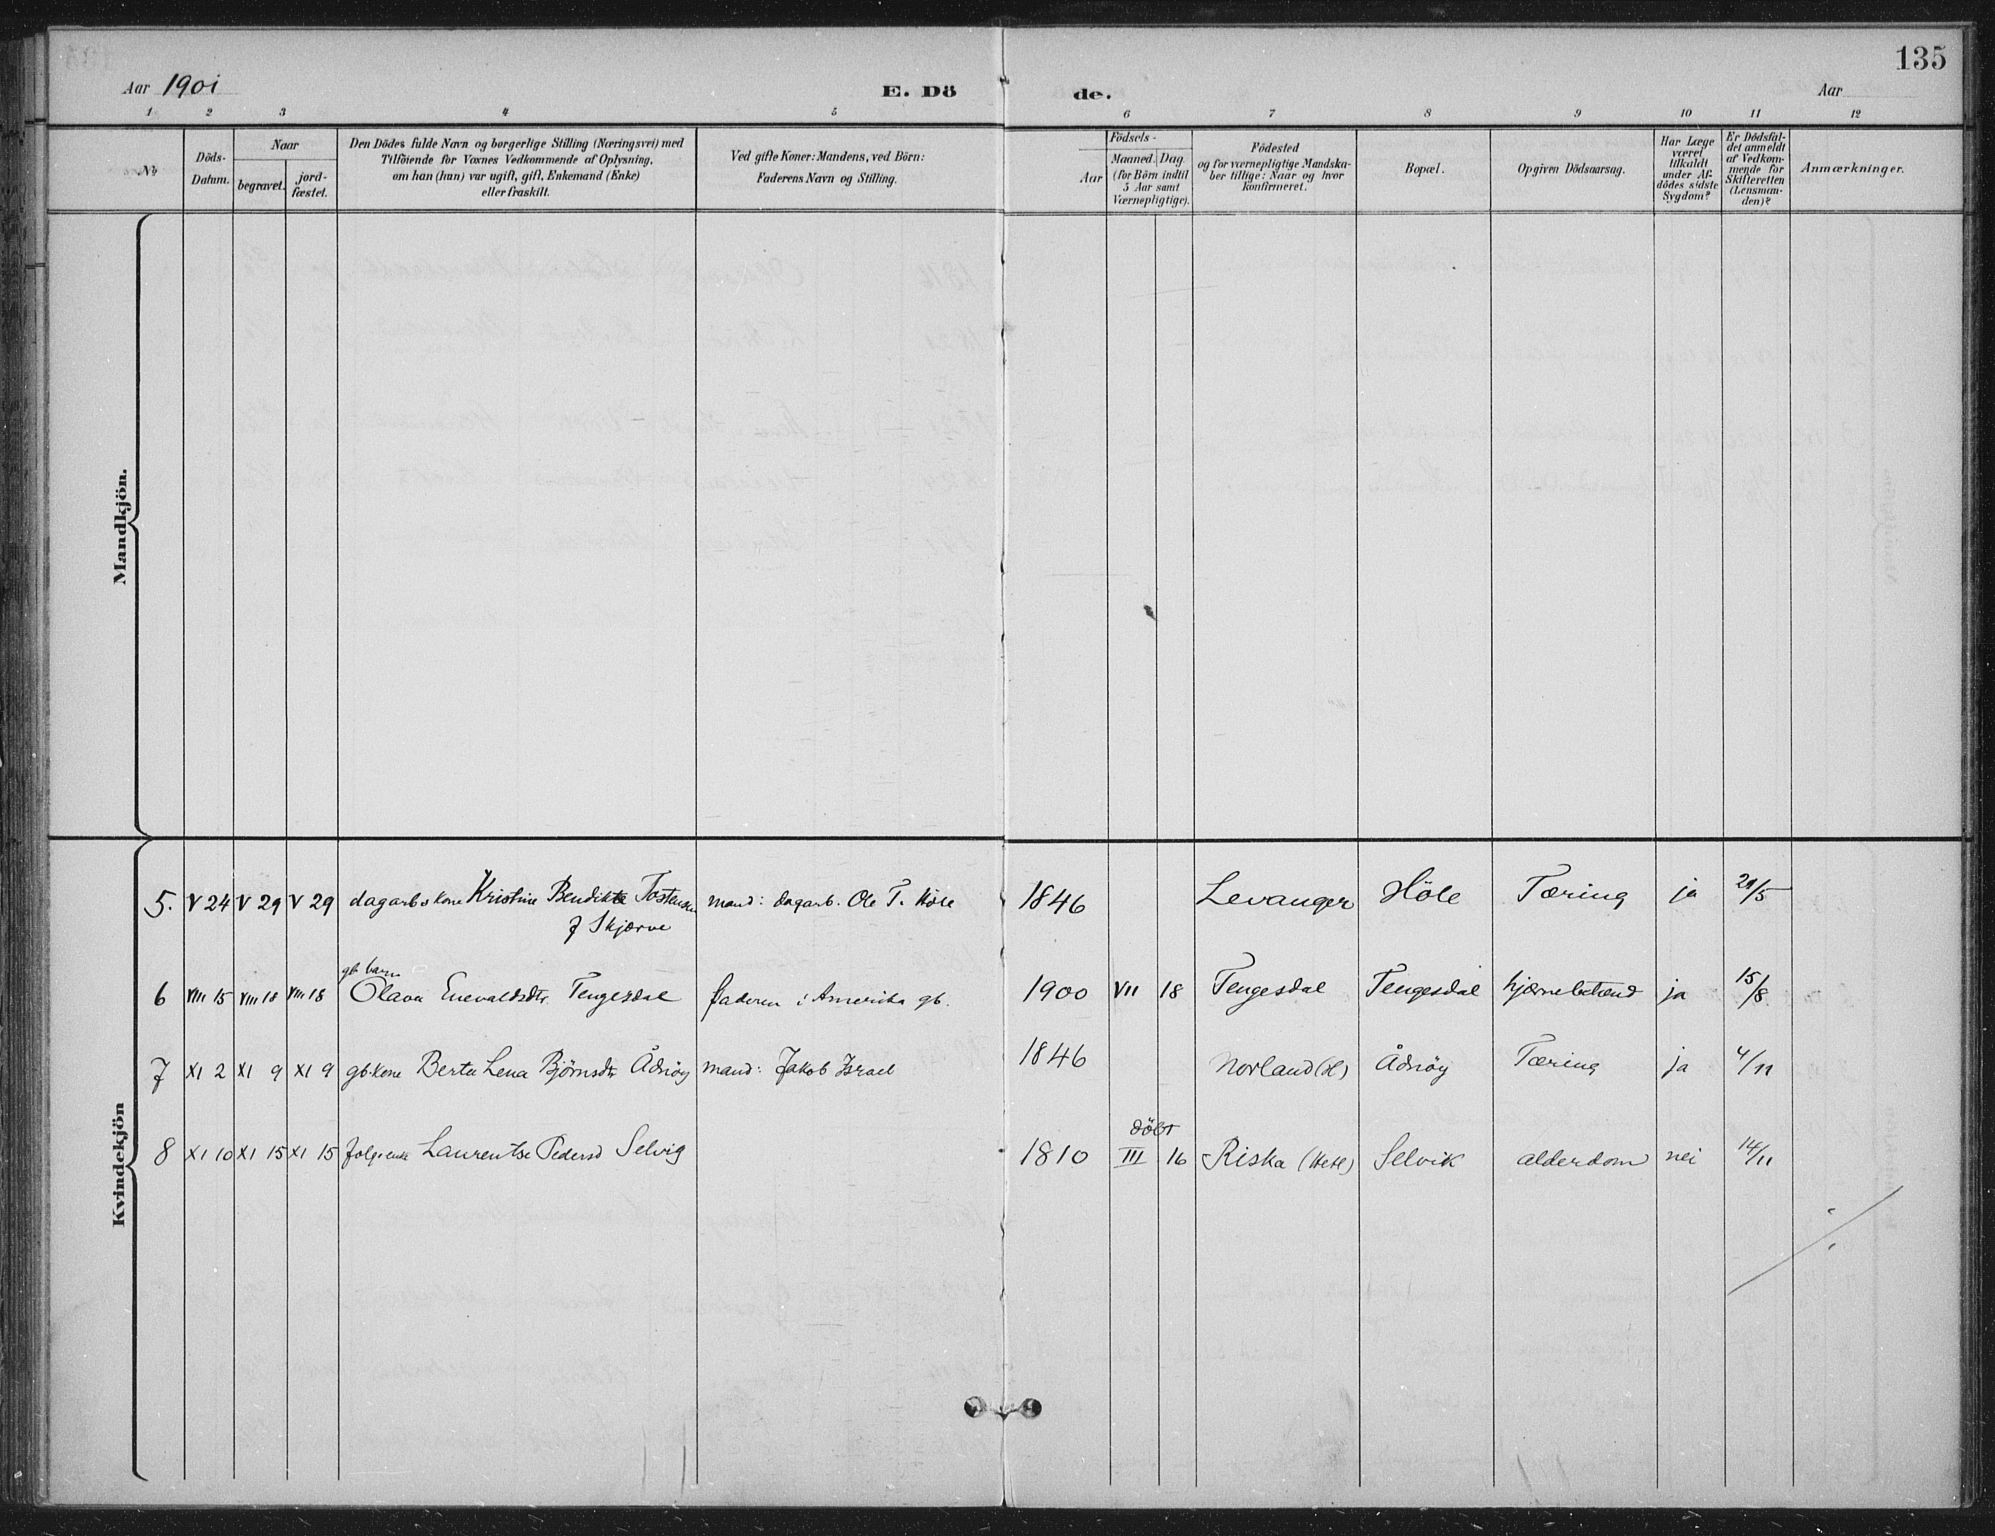 135
Aar 1901
E. Dö de.
Aar
1 2 3 4 5 6 7 8 9 10 11 12
No
Döds-Datum.
Naar
begravet.
jord-fæstet.
Den Dödes fulde Navn og borgerlige Stilling (Næringsvei) med
Tilföiende for Voxnes Vedkommende af Oplysning,
om han (hun) var ugift, gift, Enkemand (Enke)
eller fraskilt.
Ved gifte Koner: Mandens, ved Börn:
Faderens Navn og Stilling.
Födsels-
Aar
Maaned. Dag.
(for Börn indtil
5 Aar samt
Værnepligtige).
Födested
og for værnepligtige Mandska-
ber tillige: Naar og hvor
konfirmeret.
Bopæl.
Opgiven Dödsaarsag.
Har Læge
været
tilkaldt
under Af-
dödes sidste
Sygdom?
Er Dödsfal-
det anmeldt
af Vedkom-
mende for
Skifteretten
(Lensman-
den)?
Anmærkninger.
Mandkjön.
Kvindekjön
5. V 24 V 29 V 29 dagarbs kone Kristine Bendikte Tostensen mand: dagarb. Ole T. Höle 1846 Levanger Höle Tæring ja 29/5
f Skjærve
gb barn
6 VIII 15 VIII 18 VIII 18 Olava Enevaldsdtr. Tengesdal faderen i Amerika gb. 1900 VII 18 Tengesdal Tengesdal hjernebetænd ja 15/8
7 XI 2 XI 9 XI 9 gb.kone Berta Lena Björnsdtr Ådnöy mand: Jakob Israel 1846 Norland (H) Ådnöy Tæring ja 4/11
döbt
8 XI 10 XI 15 XI 15 folgeenke Laurentse Pedersd Selvig 1810 III 16 Riska (Hetl) Selvik alderdom nei 14/11